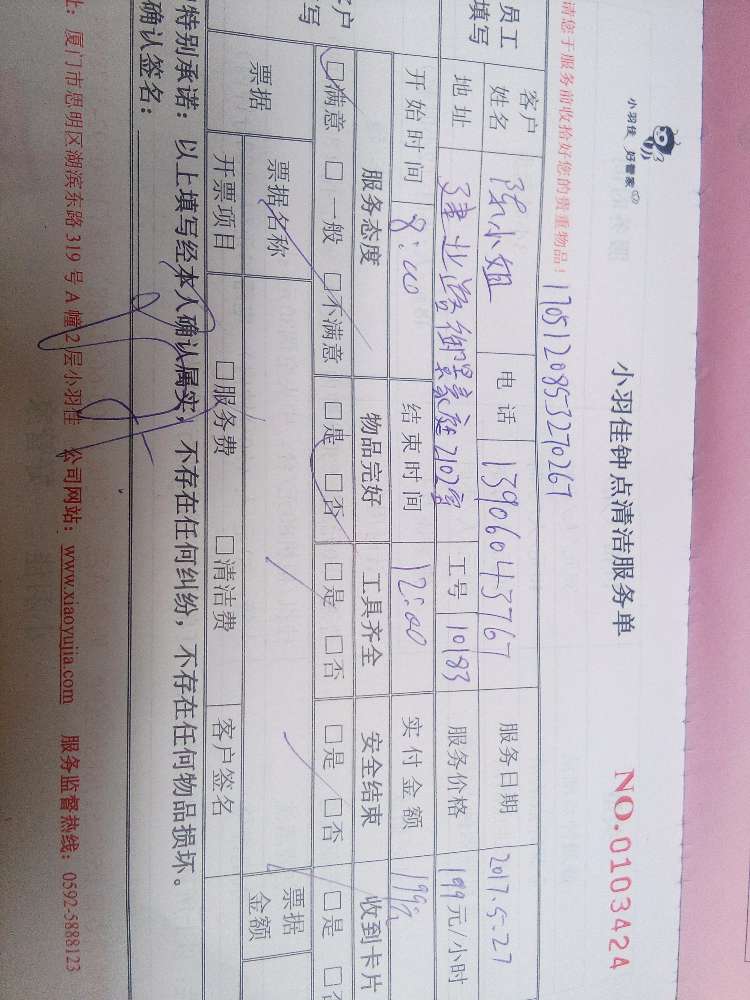 小羽佳 好管家
小羽佳钟点清洁服务单
NO.0103424
请您于服务前收拾好您的贵重物品！ 1705120853270267
员工填写 客户姓名 陈小姐 电话 13906043767 服务日期 2017.5.27
地址 建业路御景豪庭2102室 工号 10183 服务价格 199元/小时
开始时间 8:00 结束时间 12:00 实付金额 199元
客户 写 服务态度 物品完好 工具齐全 安全结束 收到卡片
□满意 □一般 □不满意 □是 □否 □是 □否 □是 □否 □是 □否
票据 票据名称 票据金额
开票项目 □服务费 □清洁费 客户签名
特别承诺：以上填写经本人确认属实，不存在任何纠纷，不存在任何物品损坏。
确认签名：
址：厦门市思明区湖滨东路319号A幢2层小羽佳 公司网站：www.xiaoyujia.com 服务监督热线：0592-5888123